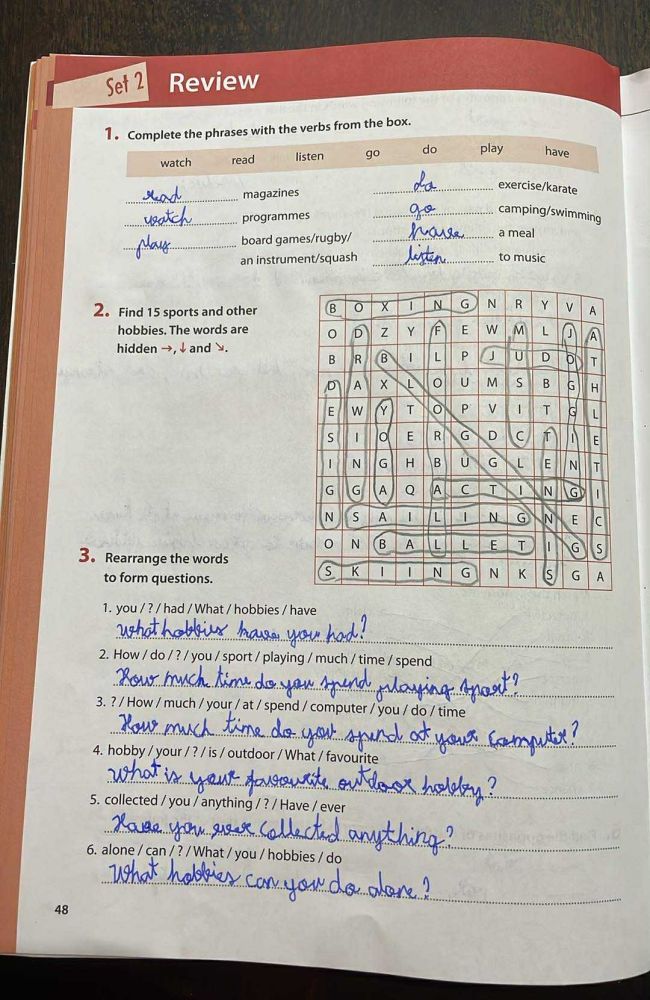 Set 2 Review
1. Complete the phrases with the verbs from the box.
watch read listen go do play have
read magazines
do exercise/karate
watch programmes
go camping/swimming
play board games/rugby/
an instrument/squash
have a meal
listen to music
2. Find 15 sports and other
hobbies. The words are
hidden →, ↓ and ↘.
B O X I N G N R Y V A
O D Z Y F E W M L J A
B R B I L P J U D O T
D A X L O U M S B G H
E W Y T O P V I T G L
S I O E R G D C T I E
I N G H B U G L E N T
G G A Q A C T I N G I
N S A I L I N G N E C
O N B A L L E T I G S
S K I I N G N K S G A
3. Rearrange the words
to form questions.
1. you / ? / had / What / hobbies / have
What hobbies have you had?
2. How / do / ? / you / sport / playing / much / time / spend
How much time do you spend playing sport?
3. ? / How / much / your / at / spend / computer / you / do / time
How much time do you spend at your computer?
4. hobby / your / ? / is / outdoor / What / favourite
What is your favourite outdoor hobby?
5. collected / you / anything / ? / Have / ever
Have you ever collected anything?
6. alone / can / ? / What / you / hobbies / do
What hobbies can you do alone?
48